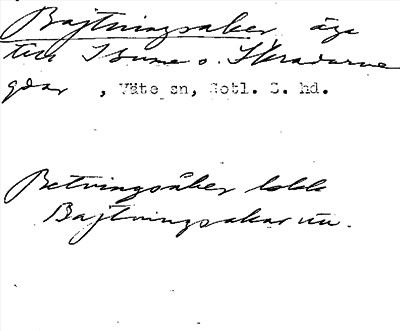 Bajtningsaker, äga
till Isume o. Skradarve
gdar , Väte sn, Gotl. S. hd.
Betningsåker lokk
Bajtningsakar nu.